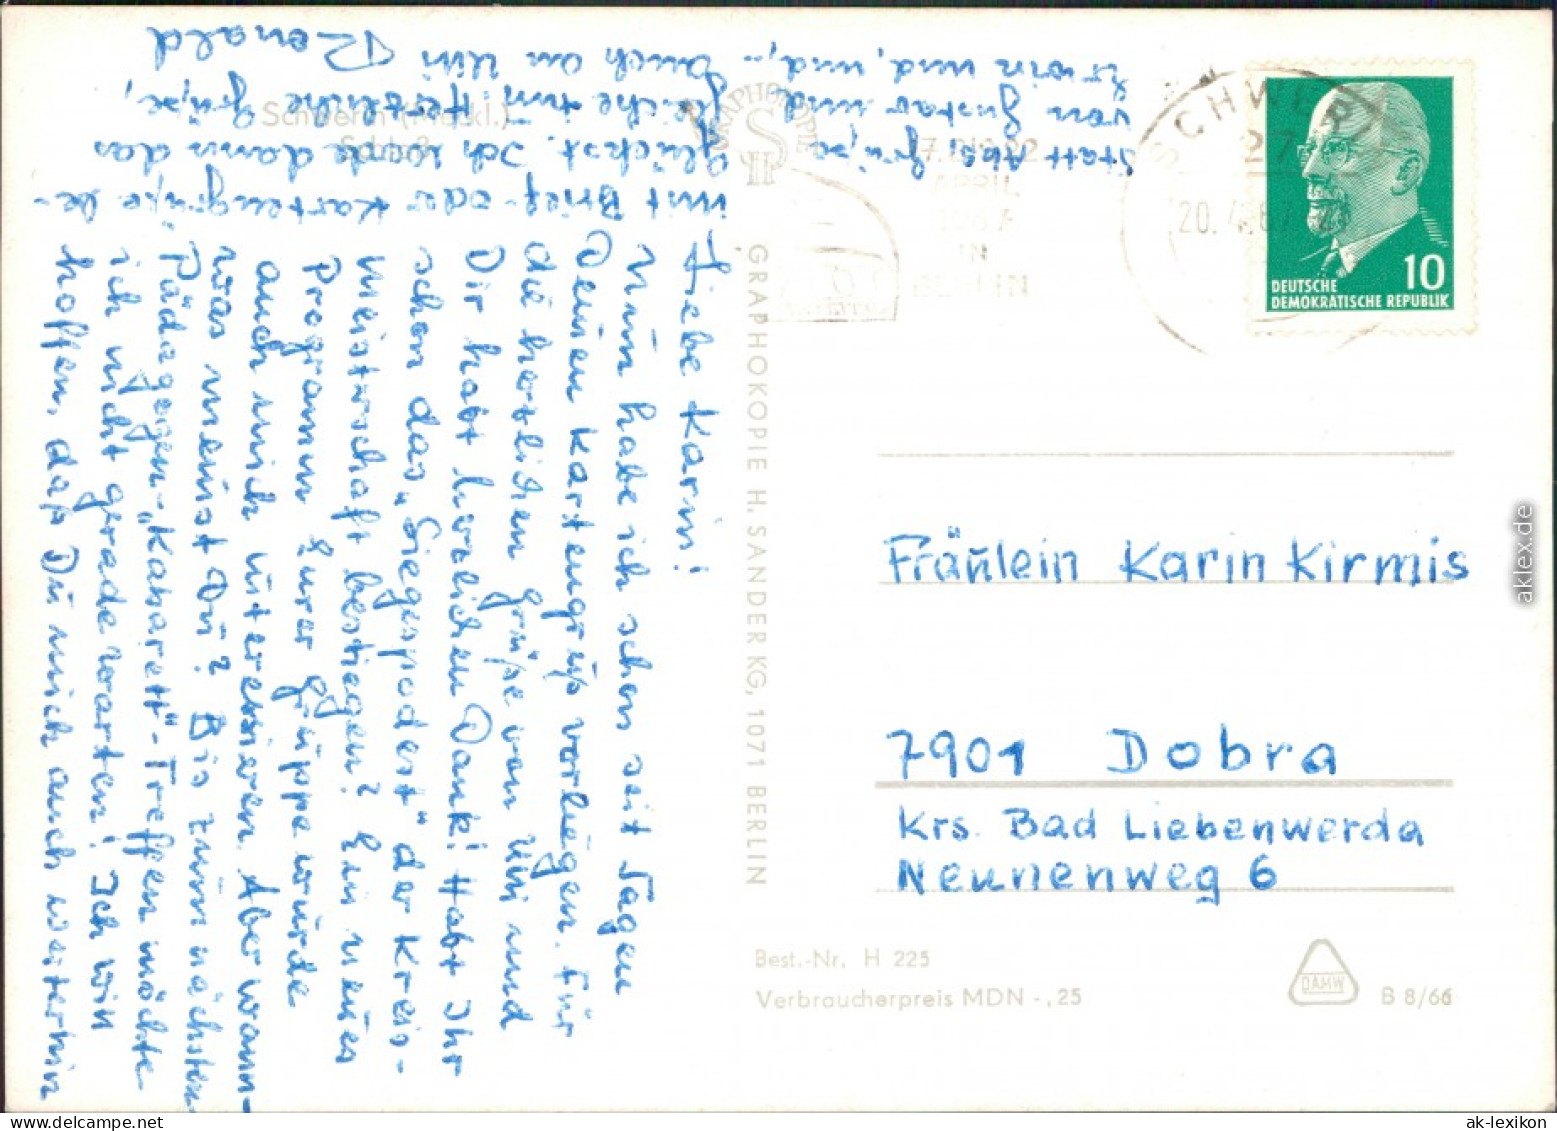 Schwerin (Meckl.)
Schloß
Liebe Karin!
Nun habe ich schon seit Tagen
Deinen Kartengruß vorliegen. Für
die herzlichen Grüße von Uli und
Dir habt herzlichen Dank! Habt Ihr
schon das „Siegespodest“ der Kreis-
meisterschaft bestiegen? Ein neues
Programm Eurer Gruppe würde
auch mich interessieren. Aber wann-
was meinst Du? Bis zum nächsten
Pädagogen-„Kabarett“-Treffen möchte
ich nicht gerade warten! Ich will
hoffen, daß Du mich auch weiterhin
mit Brief- oder Kartengrüße be-
glückst. Ich würde dann das
gleiche tun. Herzliche Grüße,
auch an Uli Ronald
Statt Abs.: Grüße
von Gustav und
Erwin und, und, -
GRAPHOKOPIE
S
H
GRAPHOKOPIE H. SANDER KG, 1071 BERLIN
APRIL
1967
IN
BERLIN
SCHWERIN
27
20. 4. 67
10
DEUTSCHE
DEMOKRATISCHE REPUBLIK
Fräulein Karin Kirmis
7901 Dobra
Krs. Bad Liebenwerda
Neunenweg 6
Best.-Nr. H 225
Verbraucherpreis MDN -,25
DAMW
B 8/66
aklex.de
ak-lexikon